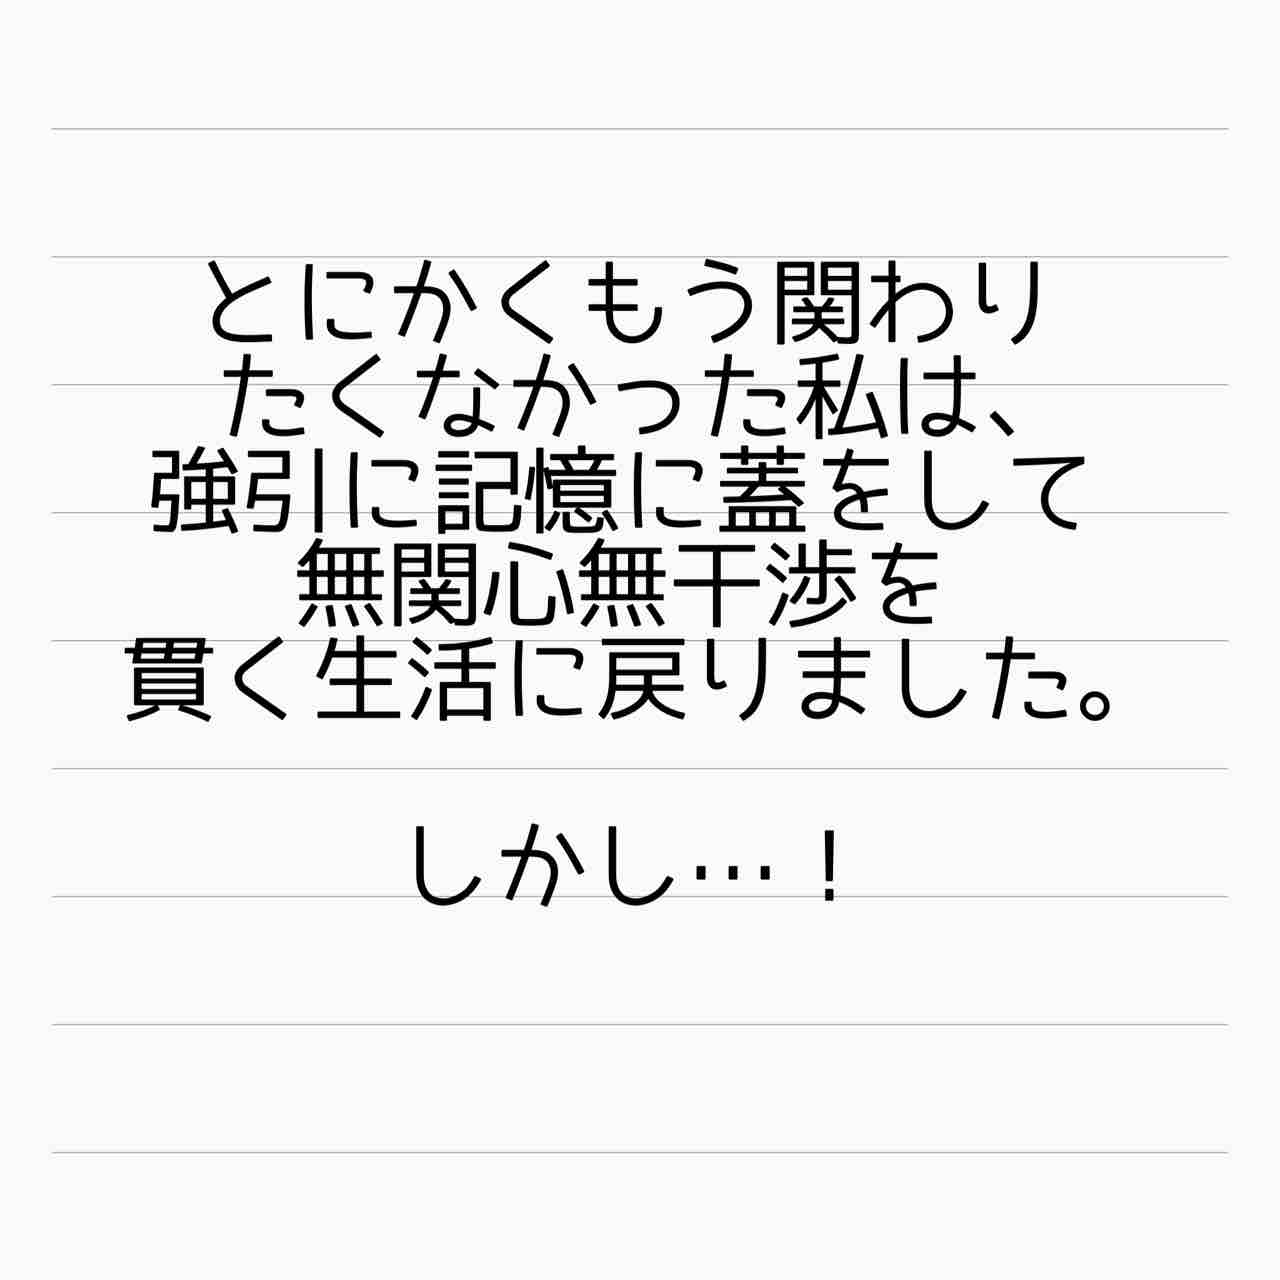 とにかくもう関わり
たくなかった私は、
強引に記憶に蓋をして
無関心無干渉を
貫く生活に戻りました。
しかし…！